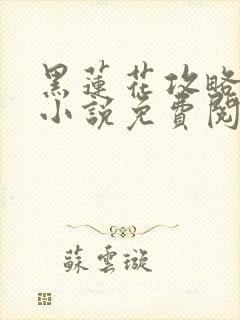 黑蓮花攻略
小說免費閱
蘇雲璇